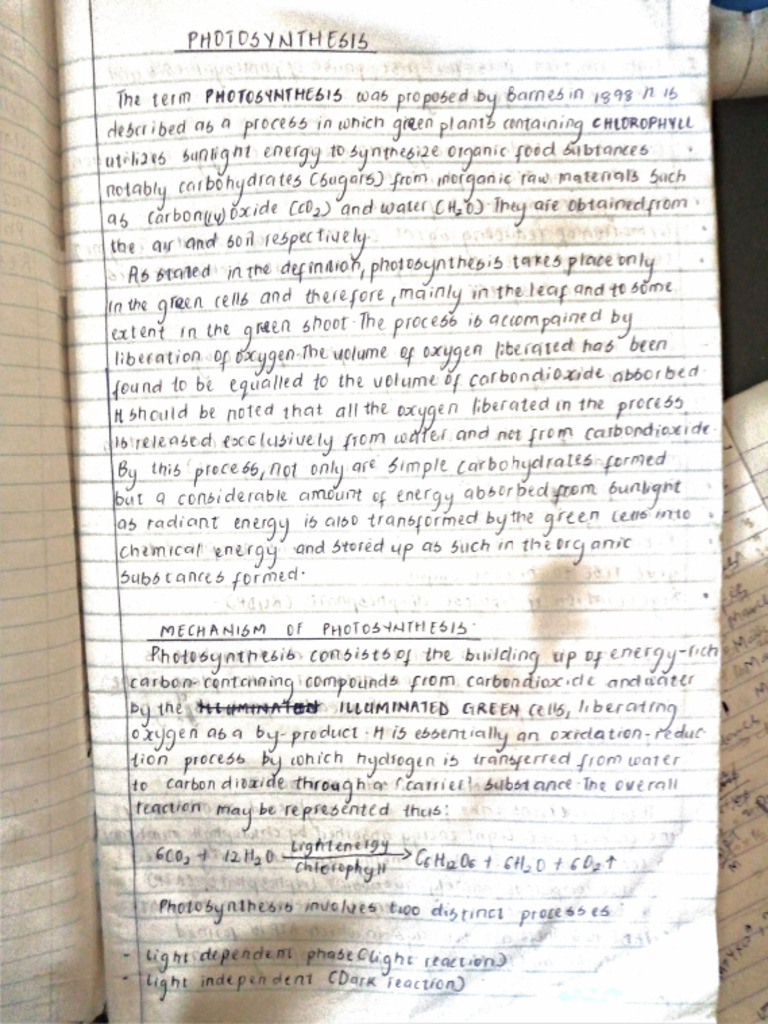 PHOTOSYNTHESIS
The term PHOTOSYNTHESIS was proposed by Barnes in 1898 It is
described as a process in which green plants containing CHLOROPHYLL
utilizes sunlight energy to synthesize organic food subtances
notably carbohydrates (sugars) from inorganic raw materials such
as carbon(IV)oxide (CO2) and water (H2O). They are obtained from
the air and soil respectively
As stated in the definition, photosynthesis takes place only
in the green cells and therefore, mainly in the leaf and to some
extent in the green shoot. The process is accompained by
liberation of oxygen. The volume of oxygen liberated has been
found to be equalled to the volume of carbondioxide absorbed
It should be noted that all the oxygen liberated in the process
is released excclusively from water and not from carbondioxide.
By this process, not only are simple carbohydrates formed
but a considerable amount of energy absorbed from sunlight
as radiant energy is also transformed by the green cells into
chemical energy and stored up as such in the organic
substances formed.
MECHANISM OF PHOTOSYNTHESIS.
Photosynthesis consists of the building up of energy-rich
carbon-containing compounds from carbondioxide and water
by the ILLUMINATED GREEN cells, liberating
oxygen as a by-product. It is essentially an oxidation-reduc-
tion process by which hydrogen is transferred from water
to carbondioxide through a 'carrier' substance. The overall
reaction may be represented thus:
6CO2 + 12H2O Light energy chlorophyll → C6H12O6 + 6H2O + 6O2↑
Photosynthesis involves two distinct processes
- Light dependent phase (Light reaction)
- Light independent (Dark reaction)